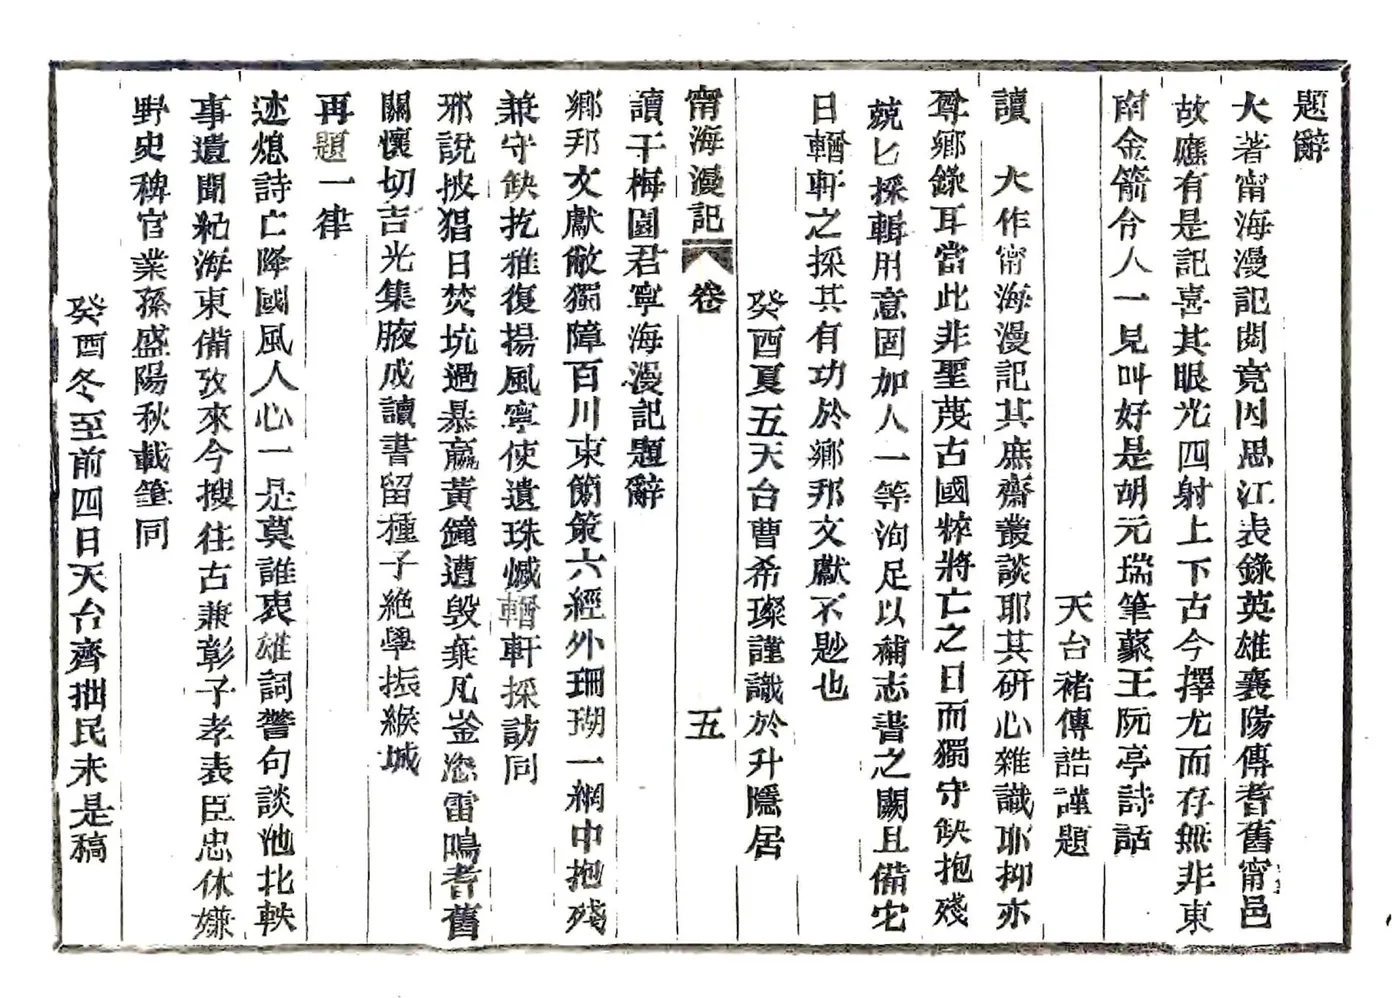 題辭
大著甯海漫記閱竟因思江表錄英雄襄陽傳耆舊甯邑
故應有是記喜其眼光四射上下古今擇尤而存無非東
南金箭令人一見叫好是胡元瑞筆蕞王阮亭詩話
天台褚傳誥謹題
讀　大作甯海漫記其庶齋叢談耶其研心雜識耶抑亦
尊鄉錄耳當此非聖蔑古國粹將亡之日而獨守缺抱殘
兢匕採輯用意固加人一等洵足以補志書之闕且備它
日輶軒之採其有功於鄉邦文獻不尠也
癸酉夏五天台曹希璨謹識於升隱居
甯海漫記　卷　五
讀干梅園君寧海漫記題辭
鄉邦文獻敝獨障百川東簡策六經外珊瑚一網中抱殘
兼守缺扢雅復揚風寧使遺珠憾輶軒採訪同
邪說披猖日焚坑過暴嬴黃鐘遭毀棄凡釜恣雷鳴耆舊
關懷切吉光集腋成讀書留種子絕學振緱城
再題一律
迹熄詩亡降國風人心一是莫誰衷雄詞警句談池北軼
事遺聞紀海東備攷來今搜往古兼彰子孝表臣忠休嫌
野史稗官業孫盛陽秋載筆同
癸酉冬至前四日天台齊拙民未是稿